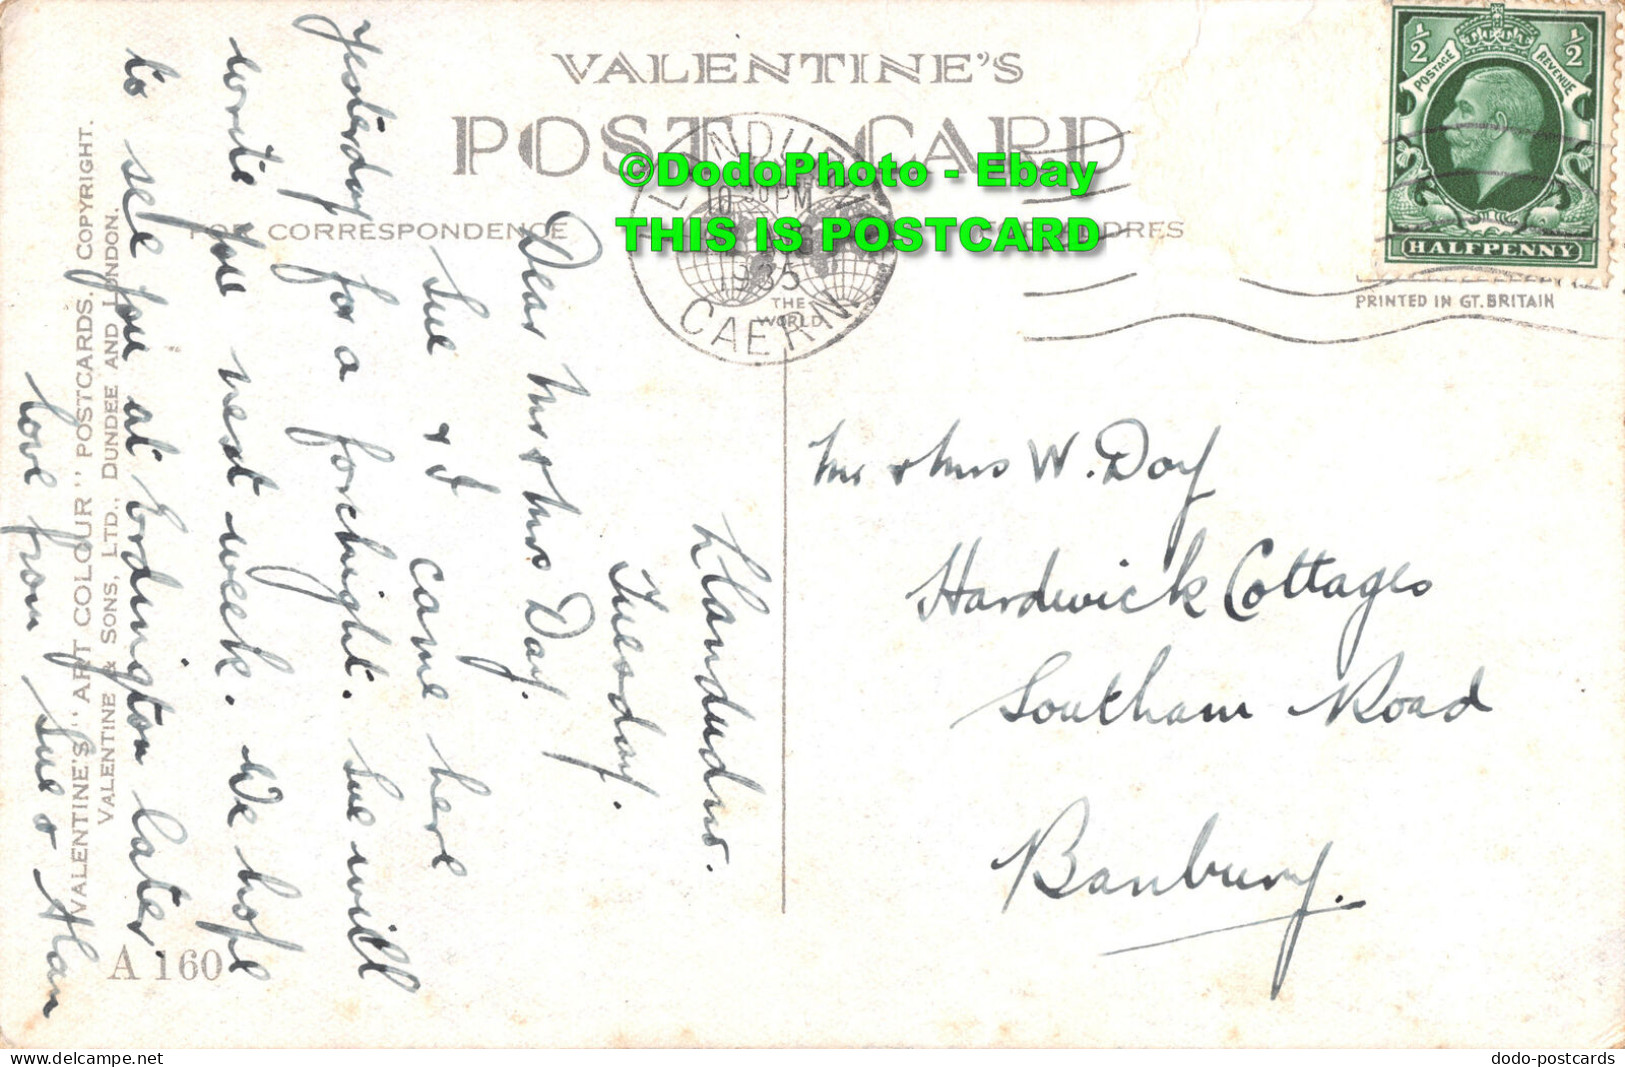 VALENTINE'S
POST CARD
FOR CORRESPONDENCE
©DodoPhoto - Ebay
THIS IS POSTCARD
LLANDUDNO
10 30 PM
1935
THE
WORLD
CAERN
½ ½
POSTAGE REVENUE
HALFPENNY
PRINTED IN GT. BRITAIN
Llandudno.
Tuesday.
Dear Mr & Mrs Day.
Sue & I came here
Yesterday for a fortnight. Sue will
write you next week. We hope
to see you at Bodington later.
love from Sue & Alan
Mr & Mrs W. Day
Hardwick Cottages
Southam Road
Banbury.
VALENTINE'S "ART COLOUR" POSTCARDS. COPYRIGHT.
VALENTINE & SONS, LTD., DUNDEE AND LONDON.
A 160
dodo-postcards
www.delcampe.net